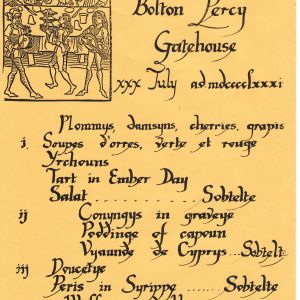 Bolton Percy
Gatehouse
xxx July ad mdcccclxxxi
Plommys, damsyns, cherries, grapis
i. Soupes d'orres, verte et rouge
Yrchouns
Tart in Ember Day
Salat .......... Sobtelte
ij Conyngys in graveye
Poddinge of capoun
Vyaunde de Cyprys...Sobtelt
iij Doucetye
Peris in Syrippe .... Sobtelte